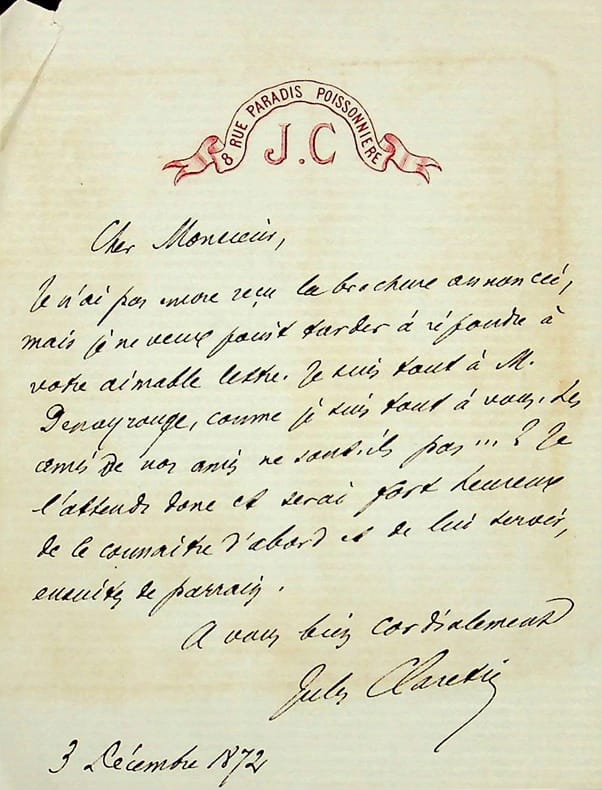 8 RUE PARADIS POISSONNIERE
J.C
Cher Monsieur,
Je n'ai pas encore reçu la brochure annoncée,
mais je ne veux point tarder à répondre à
votre aimable lettre. Je suis tout à M.
Denayrouze, comme je suis tout à vous. Les
amis de nos amis ne sont-ils pas...? Je
l'attends donc et serai fort heureux
de le connaître d'abord et de lui servir,
ensuite, de parrain.
A vous bien cordialement
Jules Claretie
3 Décembre 1872